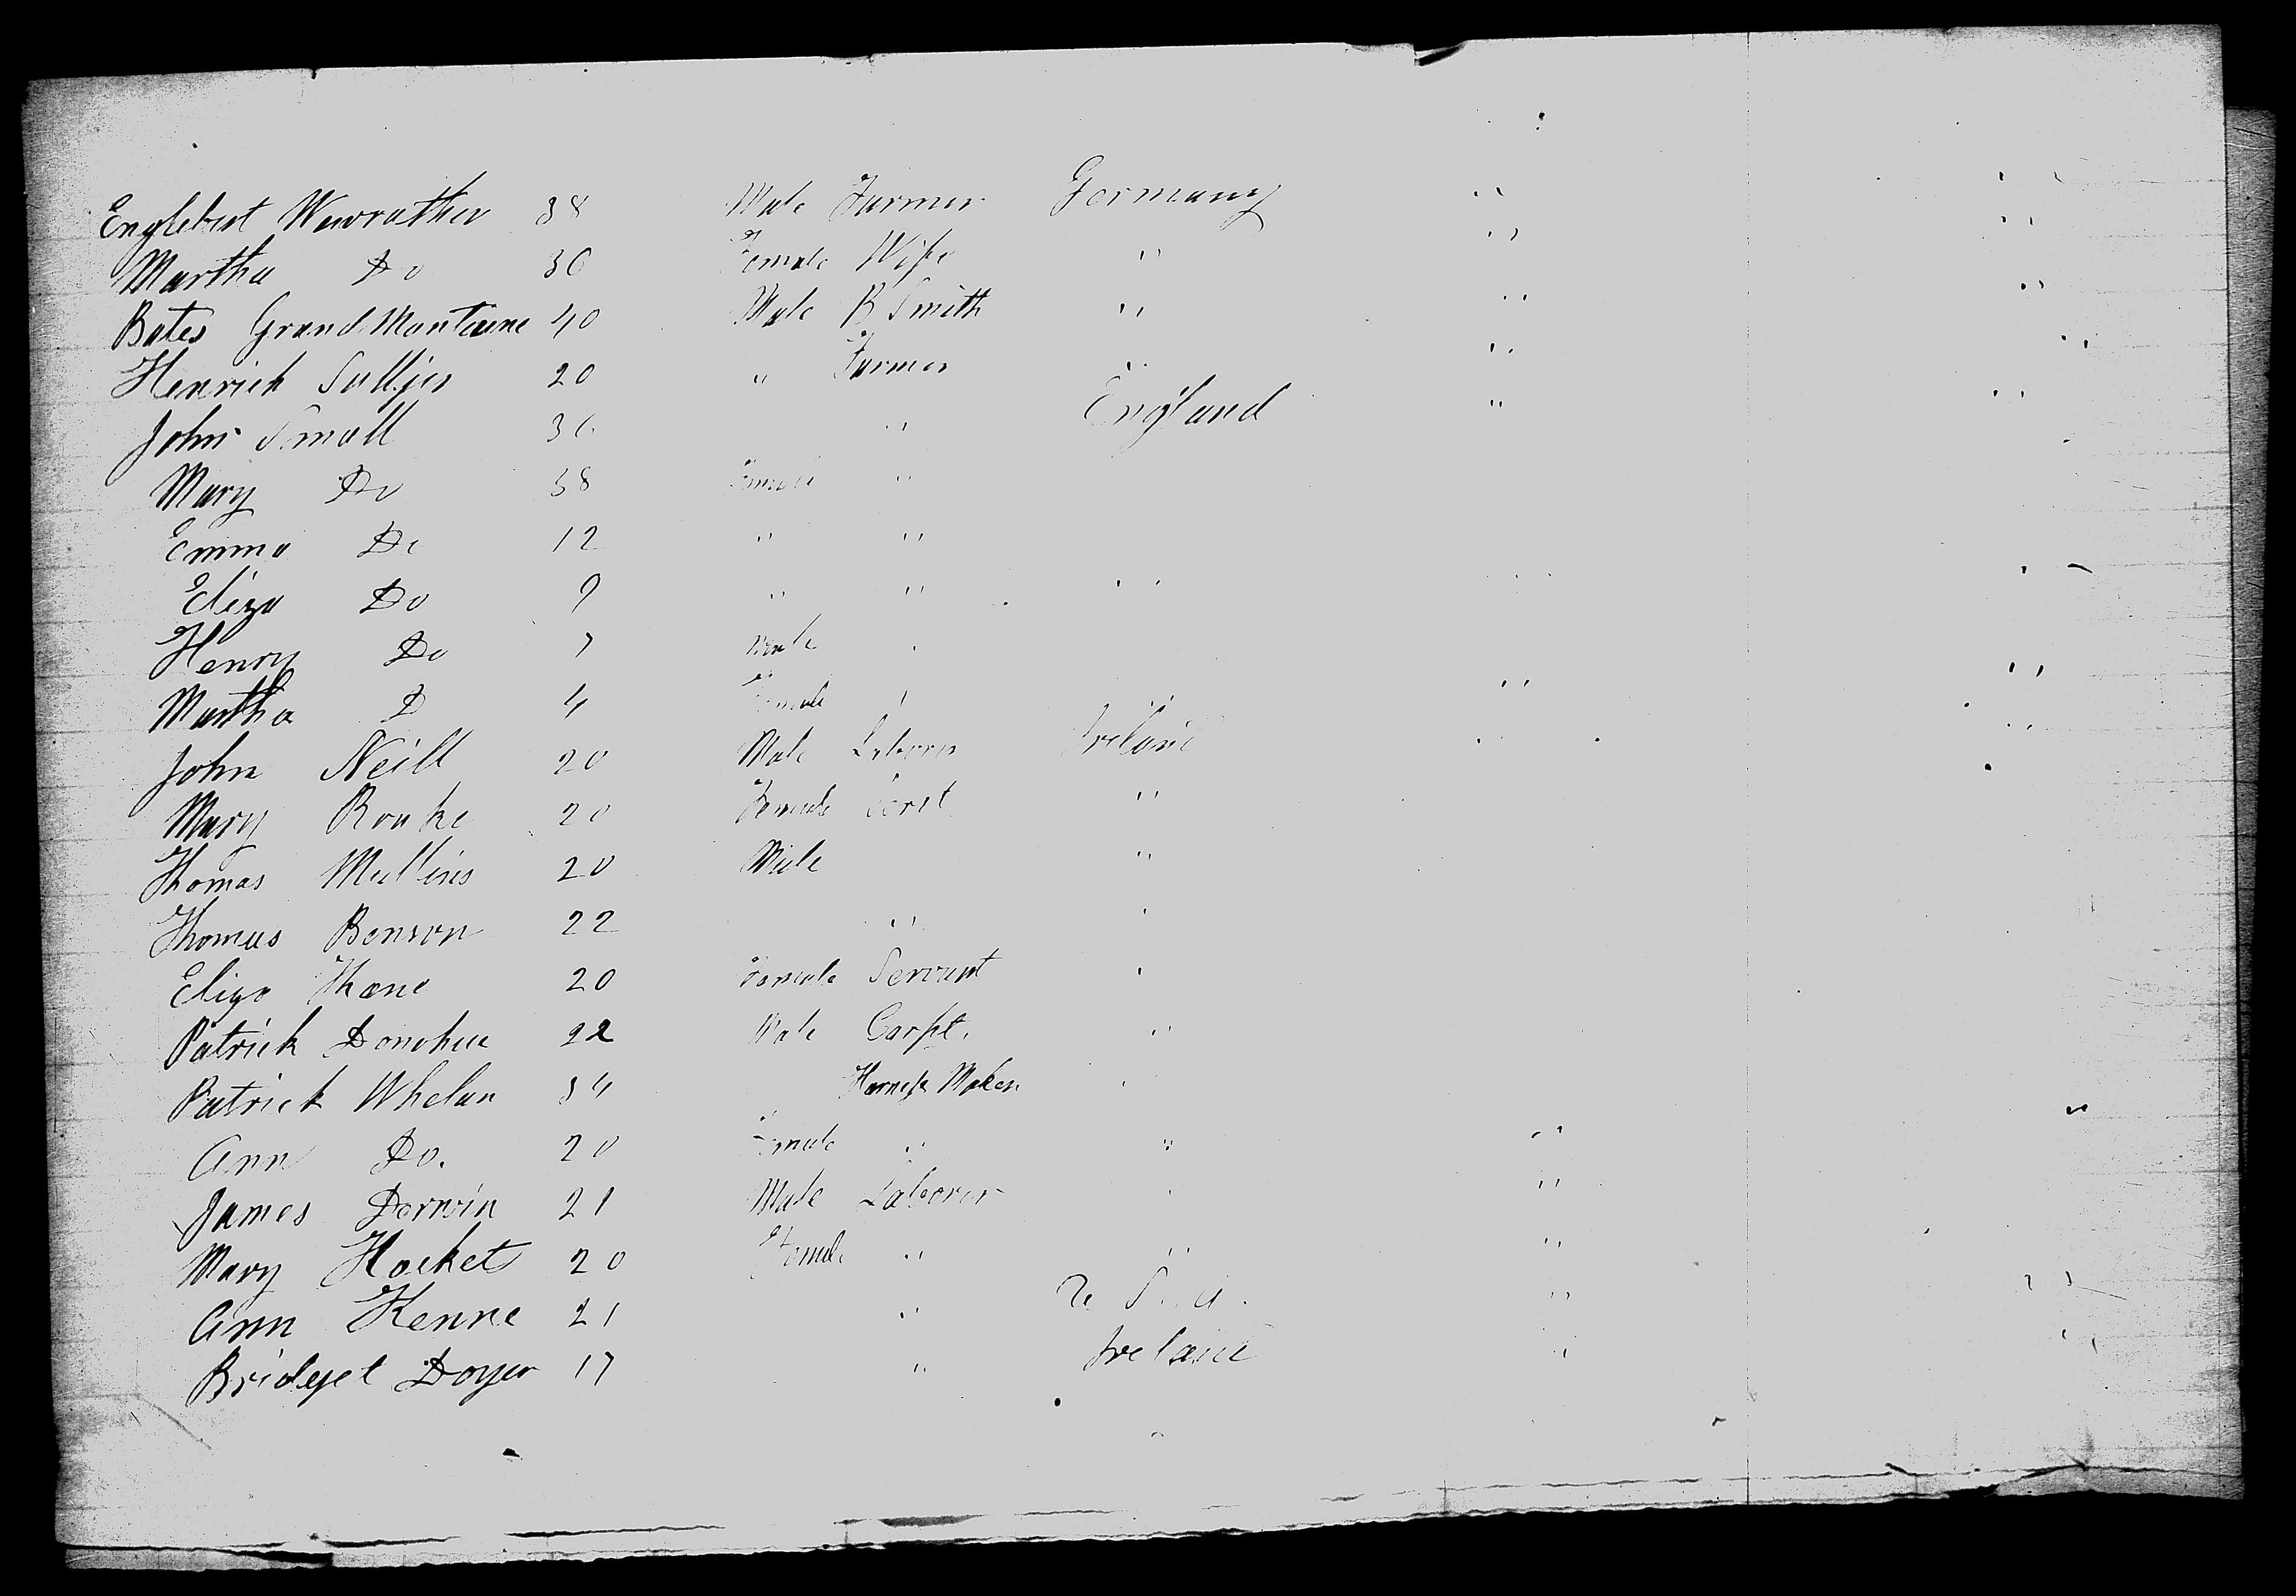 Englebert Wawrather 38 Male Farmer Germany " "
Martha Do 30 Female Wife " " "
Bates Grand Montaine 40 Male B Smith " " "
Henrich Sulljes 20 " Farmer " " "
John Small 36 " England " "
Mary Do 38 Female "
Emma Do 12 " "
Eliza Do 9 " " " "
Henry Do 7 Male
Martha D 4 Female " " "
John Neill 20 Male Laborer Ireland "
Mary Rouke 20 Female Servt "
Thomas Mullins 20 Male "
Thomas Benson 22 " "
Eliza Thane 20 Female Servant "
Patrick Donohue 22 Male Carpt. "
Patrick Whelan 34 Harness Maker "
Ann Do. 20 Female " " "
James Derwin 21 Male Laborer "
Mary Hocket 20 Female " " "
Ann Kenne 21 " U S. A. " "
Bridget Doyer 17 " Ireland " "